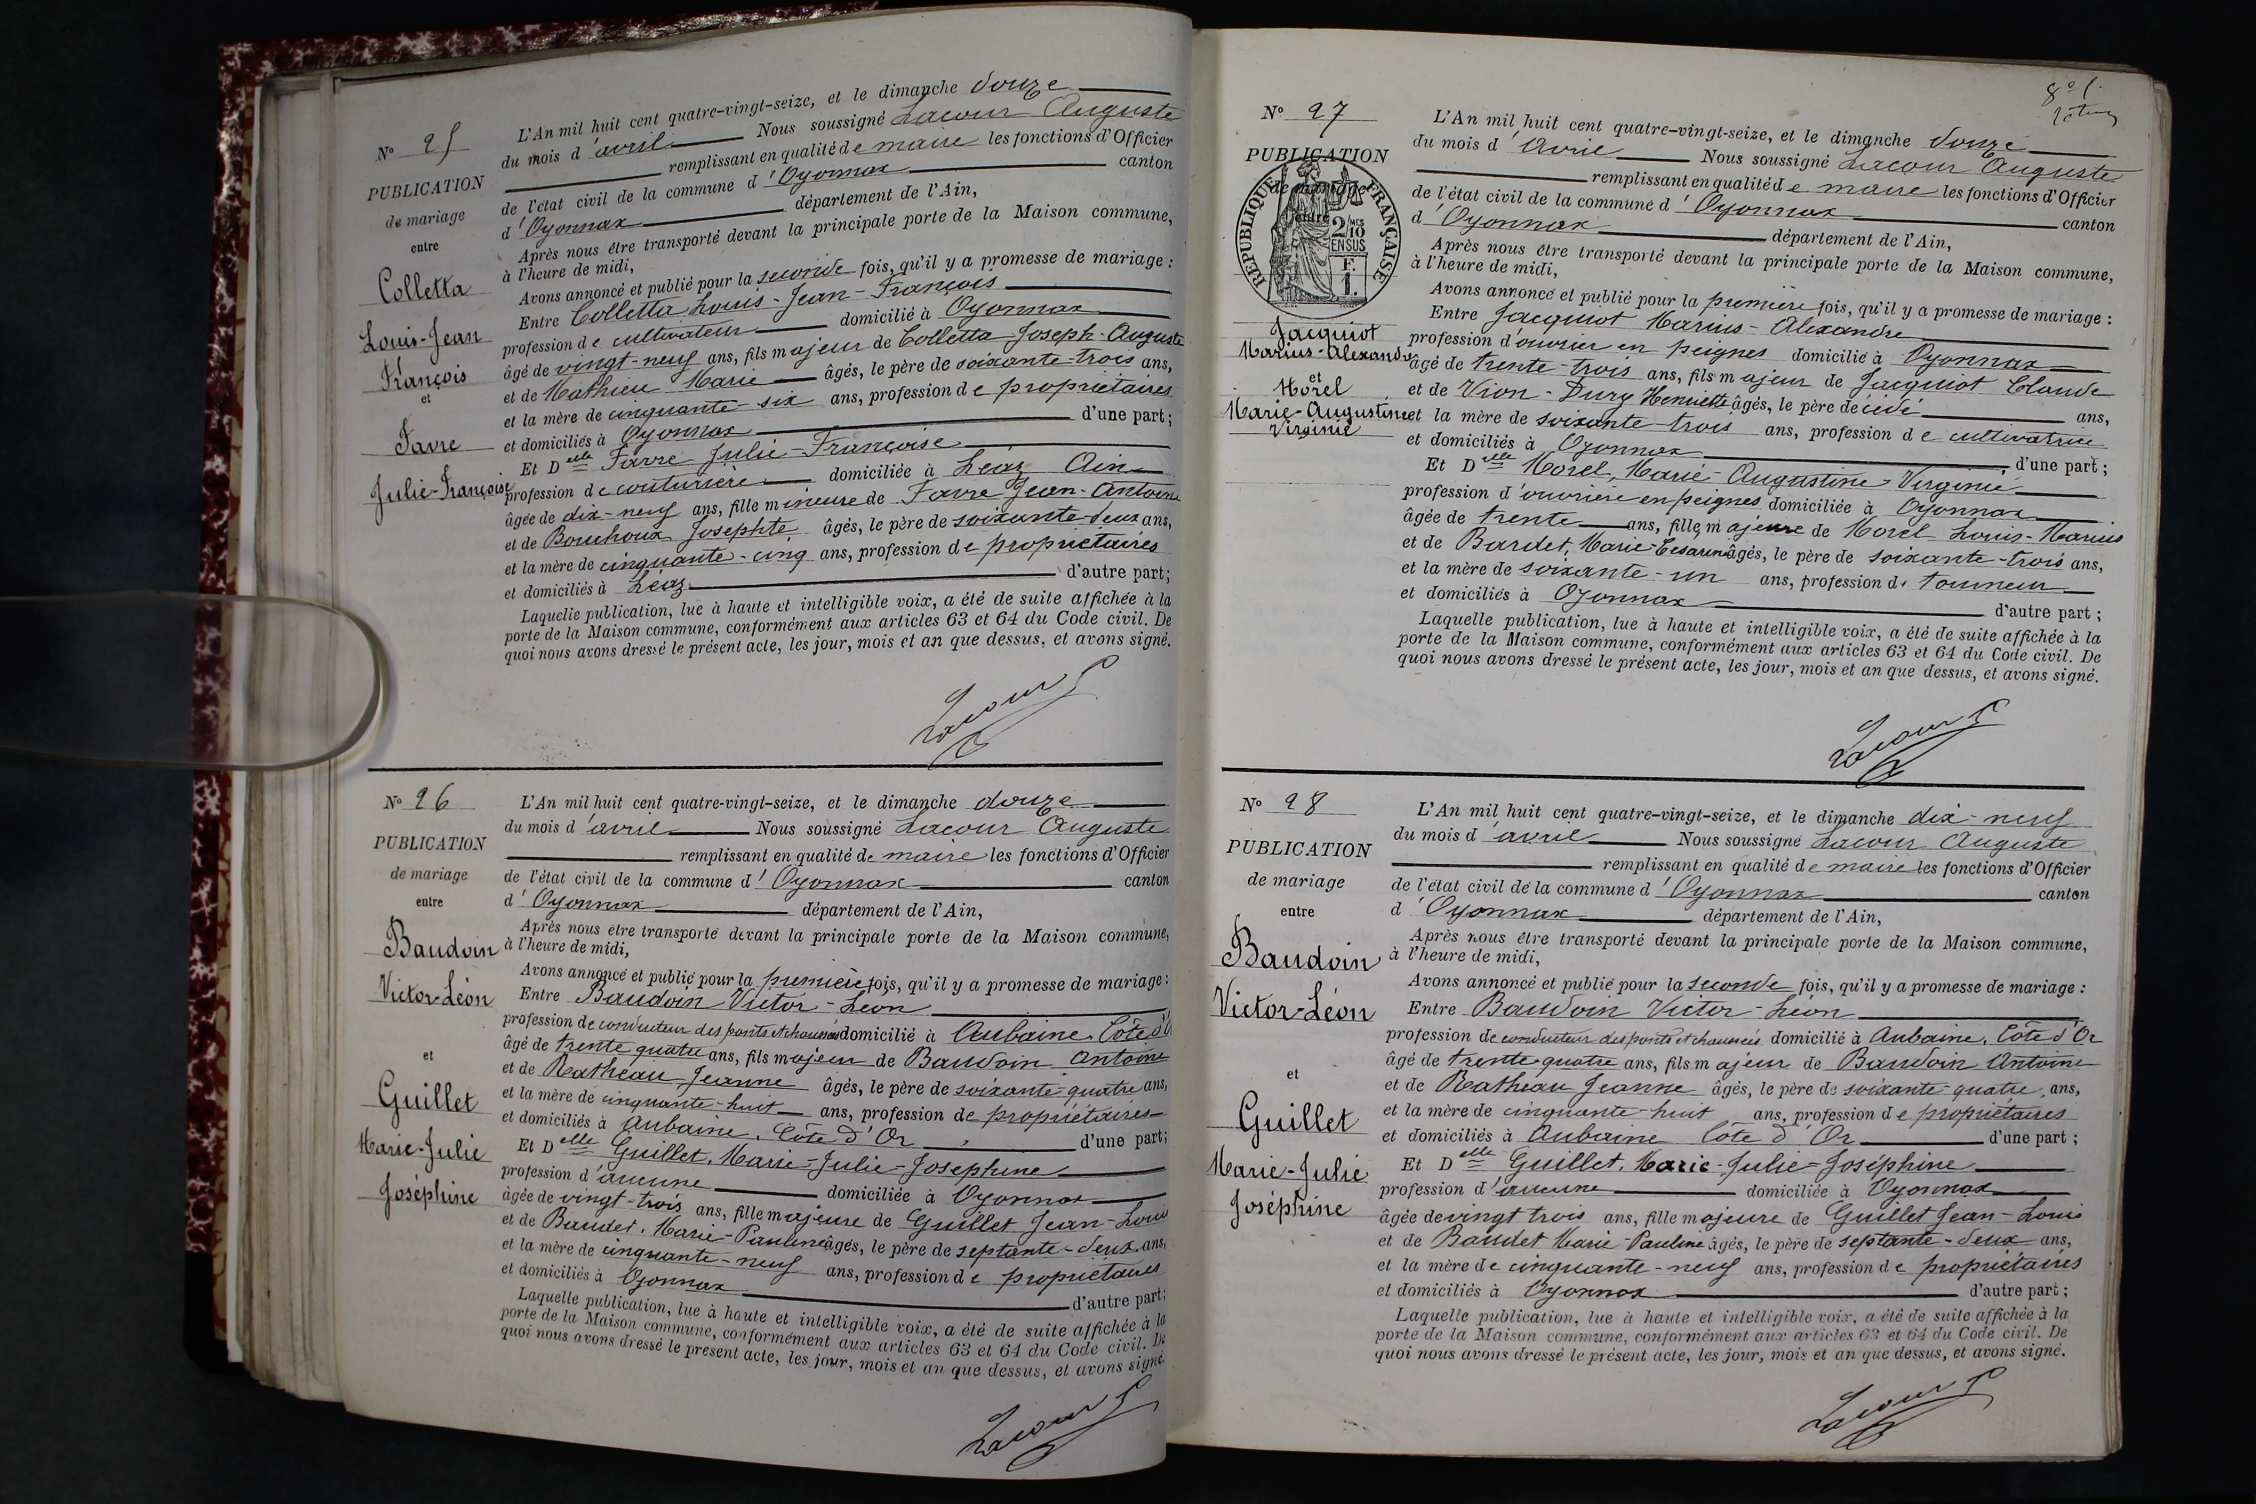 N° 25
PUBLICATION
de mariage
entre
Colletta
Louis-Jean
François
et
Favre
Julie-Françoise
L'An mil huit cent quatre-vingt-seize, et le dimanche douze
du mois d'avril Nous soussigné Lacour Auguste
remplissant en qualité de maire les fonctions d'Officier
de l'état civil de la commune d'Oyonnax canton
d'Oyonnax département de l'Ain,
Après nous être transporté devant la principale porte de la Maison commune,
à l'heure de midi,
Avons annoncé et publié pour la seconde fois, qu'il y a promesse de mariage :
Entre Colletta Louis-Jean-François
profession de cultivateur domicilié à Oyonnax
âgé de vingt-neuf ans, fils majeur de Colletta Joseph-Auguste
et de Mathieu Marie âgés, le père de soixante-trois ans,
et la mère de cinquante-six ans, profession de propriétaires
et domiciliés à Oyonnax d'une part ;
Et Delle Favre Julie-Françoise
profession de couturière domiciliée à Léaz Ain
âgée de dix-neuf ans, fille mineure de Favre Jean-Antoine
et de Bouchoux Josephte âgés, le père de soixante-deux ans,
et la mère de cinquante-cinq ans, profession de propriétaires
et domiciliés à Léaz d'autre part ;
Laquelle publication, lue à haute et intelligible voix, a été de suite affichée à la
porte de la Maison commune, conformément aux articles 63 et 64 du Code civil. De
quoi nous avons dressé le présent acte, les jour, mois et an que dessus, et avons signé.
Lacour
N° 26
PUBLICATION
de mariage
entre
Baudoin
Victor-Léon
et
Guillet
Marie-Julie
Joséphine
L'An mil huit cent quatre-vingt-seize, et le dimanche douze
du mois d'avril Nous soussigné Lacour Auguste
remplissant en qualité de maire les fonctions d'Officier
de l'état civil de la commune d'Oyonnax canton
d'Oyonnax département de l'Ain,
Après nous être transporté devant la principale porte de la Maison commune,
à l'heure de midi,
Avons annoncé et publié pour la première fois, qu'il y a promesse de mariage :
Entre Baudoin Victor-Léon
profession de conducteur des ponts et chaussées domicilié à Aubaine, Côte d'Or
âgé de trente quatre ans, fils majeur de Baudoin Antoine
et de Ratheau Jeanne âgés, le père de soixante-quatre ans,
et la mère de cinquante-huit ans, profession de propriétaires
et domiciliés à Aubaine, Côte d'Or d'une part;
Et Delle Guillet, Marie-Julie-Josephine
profession d'aucune domiciliée à Oyonnax
âgée de vingt-trois ans, fille majeure de Guillet Jean-Louis
et de Baudet, Marie-Pauline âgés, le père de septante-deux ans,
et la mère de cinquante-neuf ans, profession de propriétaires
et domiciliés à Oyonnax d'autre part;
Laquelle publication, lue à haute et intelligible voix, a été de suite affichée à la
porte de la Maison commune, conformément aux articles 63 et 64 du Code civil. De
quoi nous avons dressé le présent acte, les jour, mois et an que dessus, et avons signé.
Lacour
8e f.
N° 27
PUBLICATION
de mariage
entre
RÉPUBLIQUE FRANÇAISE
2/10
EN SUS
F.
1.
Jacquiot
Marius-Alexandre
et
Morel
Marie-Augustine
Virginie
L'An mil huit cent quatre-vingt-seize, et le dimanche douze
du mois d'Avril Nous soussigné Lacour Auguste
remplissant en qualité de maire les fonctions d'Officier
de l'état civil de la commune d'Oyonnax
d'Oyonnax canton
département de l'Ain,
Après nous être transporté devant la principale porte de la Maison commune,
à l'heure de midi,
Avons annoncé et publié pour la première fois, qu'il y a promesse de mariage :
Entre Jacquiot Marius-Alexandre
profession d'ouvrier en peignes domicilié à Oyonnax
âgé de trente-trois ans, fils majeur de Jacquiot Claude
et de Vion-Dury Henriette âgés, le père décédé ans,
et la mère de soixante-trois ans, profession de cultivatrice
et domiciliés à Oyonnax d'une part ;
Et Delle Morel, Marie-Augustine-Virginie
profession d'ouvrière en peignes domiciliée à Oyonnax
âgée de trente ans, fille majeure de Morel Louis-Marius
et de Bardet, Marie-Césarine âgés, le père de soixante-trois ans,
et la mère de soixante-un ans, profession de tourneur
et domiciliés à Oyonnax d'autre part ;
Laquelle publication, lue à haute et intelligible voix, a été de suite affichée à la
porte de la Maison commune, conformément aux articles 63 et 64 du Code civil. De
quoi nous avons dressé le présent acte, les jour, mois et an que dessus, et avons signé.
Lacour
N° 28
PUBLICATION
de mariage
entre
Baudoin
Victor-Léon
et
Guillet
Marie-Julie
Joséphine
L'An mil huit cent quatre-vingt-seize, et le dimanche dix-neuf
du mois d'avril Nous soussigné Lacour Auguste
remplissant en qualité de maire les fonctions d'Officier
de l'état civil de la commune d'Oyonnax canton
d'Oyonnax département de l'Ain,
Après nous être transporté devant la principale porte de la Maison commune,
à l'heure de midi,
Avons annoncé et publié pour la seconde fois, qu'il y a promesse de mariage :
Entre Baudoin Victor-Léon
profession de conducteur des ponts et chaussées domicilié à Aubaine, Côte d'Or
âgé de trente-quatre ans, fils majeur de Baudoin Antoine
et de Ratheau Jeanne âgés, le père de soixante-quatre ans,
et la mère de cinquante-huit ans, profession de propriétaires
et domiciliés à Aubaine Côte d'Or d'une part ;
Et Delle Guillet, Marie-Julie-Joséphine
profession d'aucune domiciliée à Oyonnax
âgée de vingt trois ans, fille majeure de Guillet Jean-Louis
et de Baudet Marie-Pauline âgés, le père de septante-deux ans,
et la mère de cinquante-neuf ans, profession de propriétaires
et domiciliés à Oyonnax d'autre part ;
Laquelle publication, lue à haute et intelligible voix, a été de suite affichée à la
porte de la Maison commune, conformément aux articles 63 et 64 du Code civil. De
quoi nous avons dressé le présent acte, les jour, mois et an que dessus, et avons signé.
Lacour